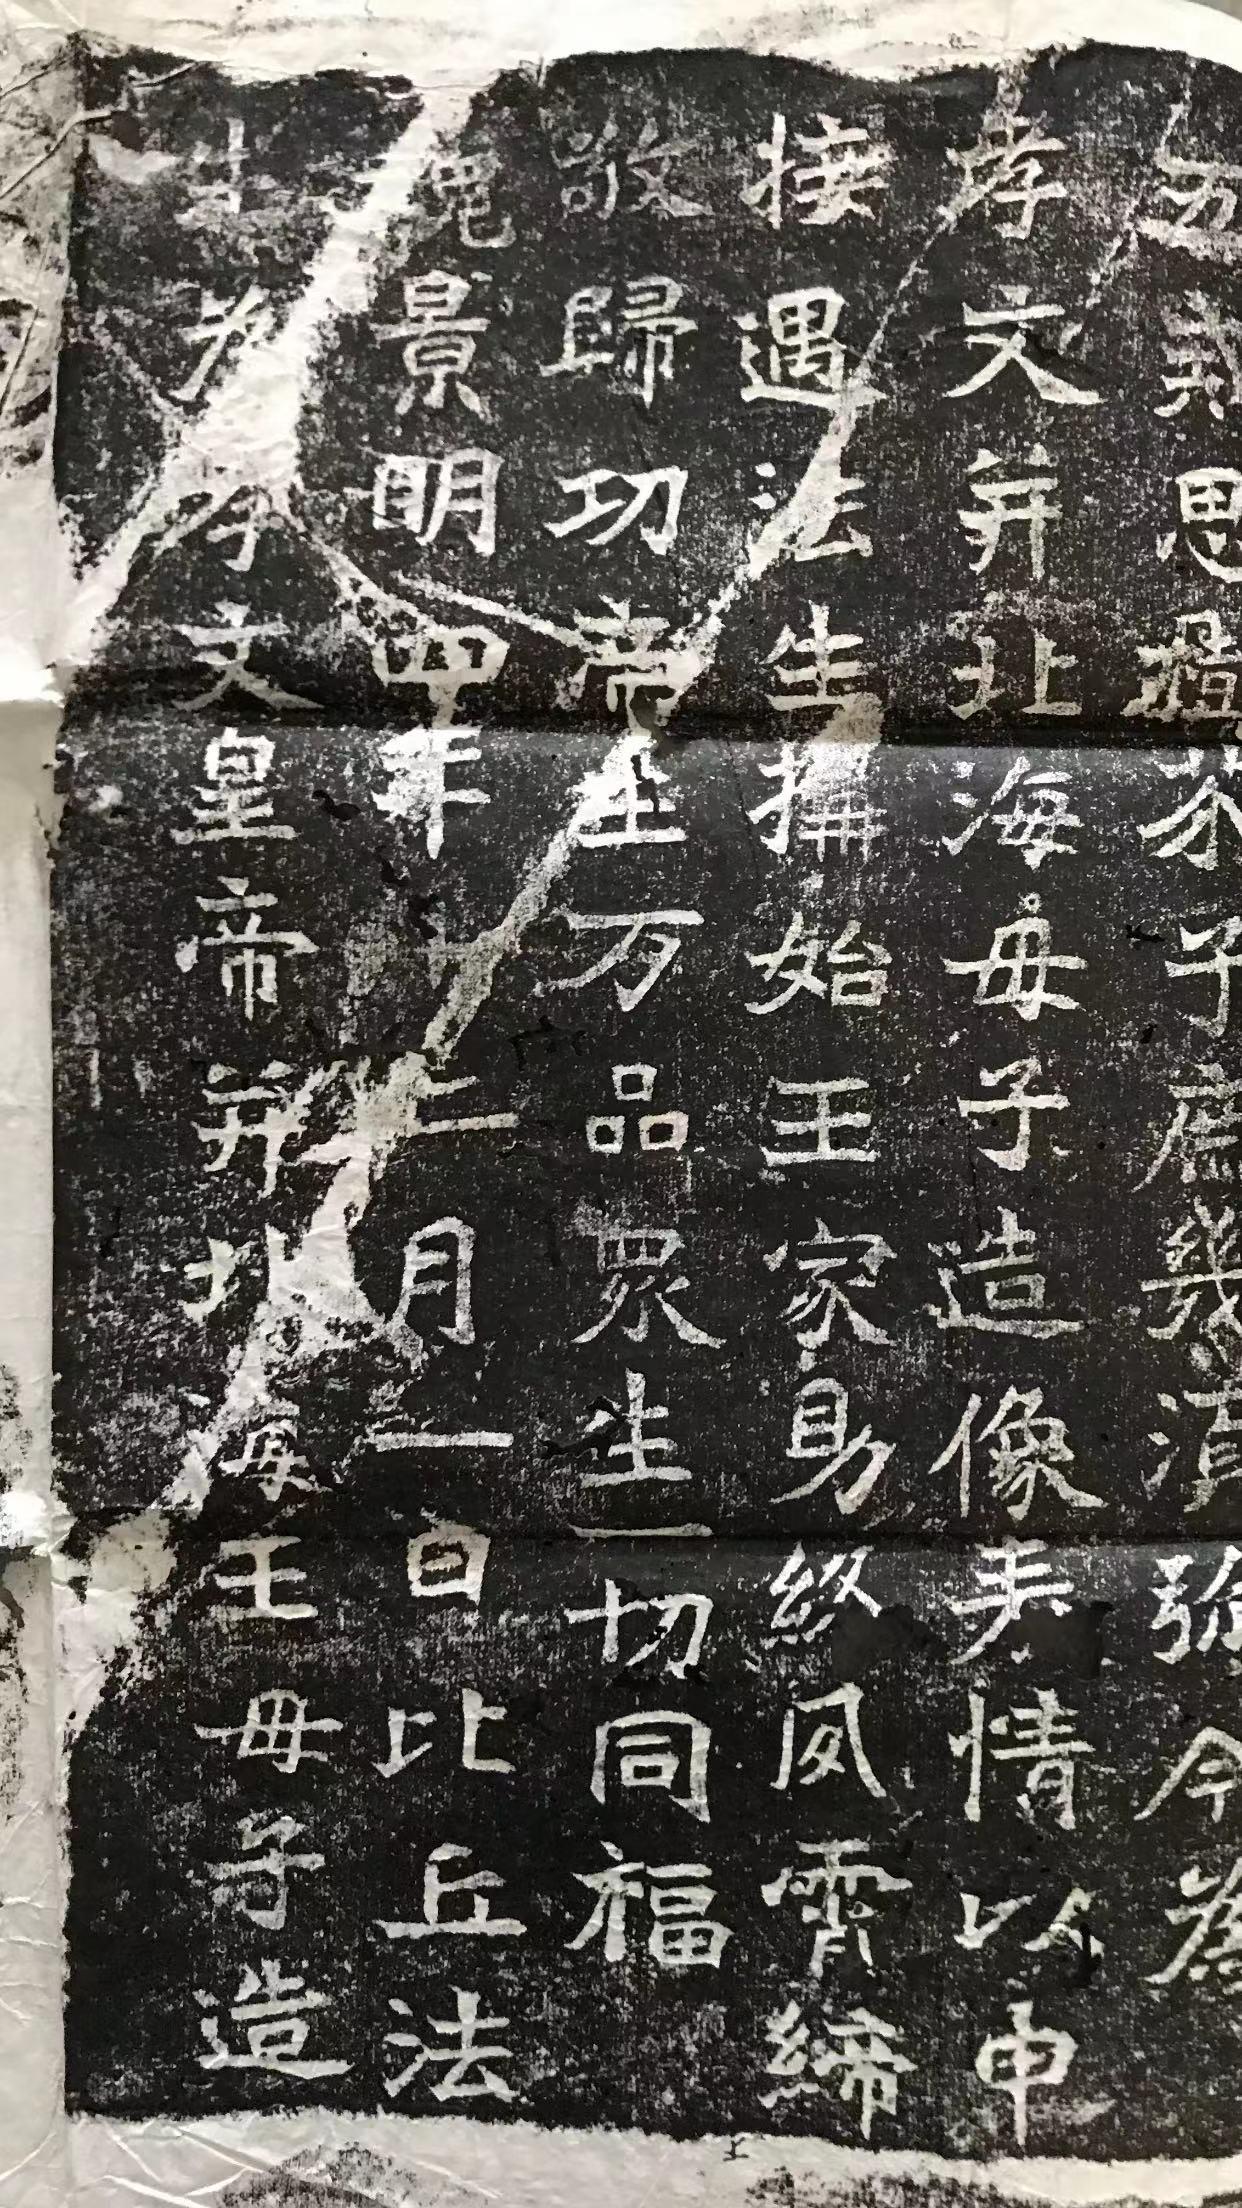 五戒思樹芥子庶幾湏弥今為
孝文并北海母子造像表情以申
接遇法生搆始王家助終夙霄締
敬歸功帝王万品眾生一切同福
魏景明四年十二月一日比丘法
生為孝文皇帝并北海王母子造